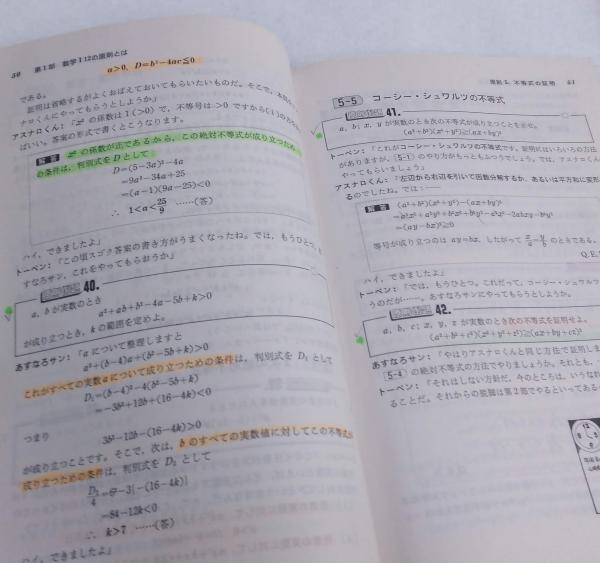 50 第1部 数学I 12の原則とは
a>0, D=b²-4ac≦0
である。
証明は省略するがよくおぼえておいてもらいたいものだ。そこで、
ナロくんにやってもらうとしようか」
アスナロくん:「x²の係数は1(>0)で、不等号は>0ですから(イ)の
ばいい。答案の形式で書くとこうなります。
解答 x²の係数が正であるから、この絶対不等式が成り立つため
の条件は、判別式をDとして
D=(5-3a)²-4a
=9a²-34a+25
=(a-1)(9a-25)<0
∴ 1<a<25/9 ……(答)
ハイ、できましたよ」
トーベン:「この頃スゴク答案の書き方がうまくなったね。では、もうひとつ、
すなろサン、これをやってもらおうか」
40.
a, bが実数のとき
a²+ab+b²-4a-5b+k>0
が成り立つとき、kの範囲を定めよ。
あすなろサン:「aについて整理しますと
a²+(b-4)a+(b²-5b+k)>0
これがすべての実数aについて成り立つための条件は、判別式をD₁として
D₁=(b-4)²-4(b²-5b+k)
=-3b²+12b+(16-4k)<0
つまり
3b²-12b-(16-4k)>0
が成り立つことです。そこで、次は、bのすべての実数値に対してこの不等式が
成り立つための条件は、判別式をD₂として
D₂/4=6²-3{-(16-4k)}
=84-12k<0
∴ k>7 ……(答)
ハイ、できましたよ」
原則5. 不等式の証明 51
5-5 コーシー・シュワルツの不等式
41.
a, b; x, yが実数のとき次の不等式が成り立つことを示せ。
(a²+b²)(x²+y²)≧(ax+by)²
トーベン:「これがコーシー・シュワルツの不等式です。証明にはいろいろの方法
がありますが、5-1のやり方がもっともふつうでしょう。では、アスナロくん
やってもらいましょう」
アスナロくん:「左辺から右辺を引いて因数分解するか、あるいは平方和に変形
るのでしたね。では:——
解答 (a²+b²)(x²+y²)-(ax+by)²
=a²x²+a²y²+b²x²+b²y²-a²x²-2abxy-b²y²
=(ay-bx)²≧0
等号が成り立つのは ay=bx, したがって x/a=y/b のときである。
Q.E.
ハイ、できましたよ」
トーベン:「では、もうひとつ。これだって、コーシー・シュワルツ
うのだが……。あすなろサンにやってもらうとしようか。
42.
a, b, c; x, y, zが実数のとき次の不等式を証明せよ。
(a²+b²+c²)(x²+y²+z²)≧(ax+by+cz)²
あすなろサン:「やはりアスナロくんと同じ方法で証明しま
5-4の絶対不等式の方法でやりましょうか。それとも、
トーベン:「それはしない方針だ、今のところは。いうなれ
ることだ。それからの脱脚は第2部でやるといってある
12